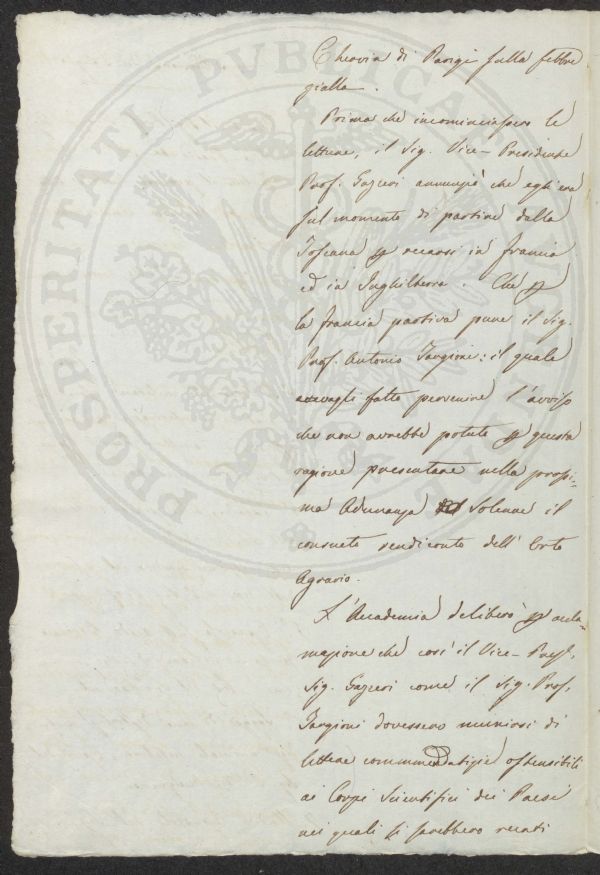 Chervin di Parigi sulla febbre
gialla.
Prima che incominciassero le
letture, il Sig. Vice-Presidente
Prof. Gazzeri annunziò che egli era
sul momento di partire dalla
Toscana p recarsi in Francia
ed in Inghilterra. Che p
la Francia partiva pure il Sig.
Prof. Antonio Targioni: il quale
avevagli fatto pervenire l'avviso
che non avrebbe potuto p questa
ragione presentare nella prossi-
ma Adunanza Solenne il
consueto rendiconto dell'Orto
Agrario.
L'Accademia deliberò p accla-
mazione che così il Vice-Presid.
Sig. Gazzeri come il Sig. Prof.
Targioni dovessero munirsi di
lettere commendatizie ostensibili
ai Corpi Scientifici dei Paesi
nei quali si sarebbero recati
PROSPERITATI PUBLICAE